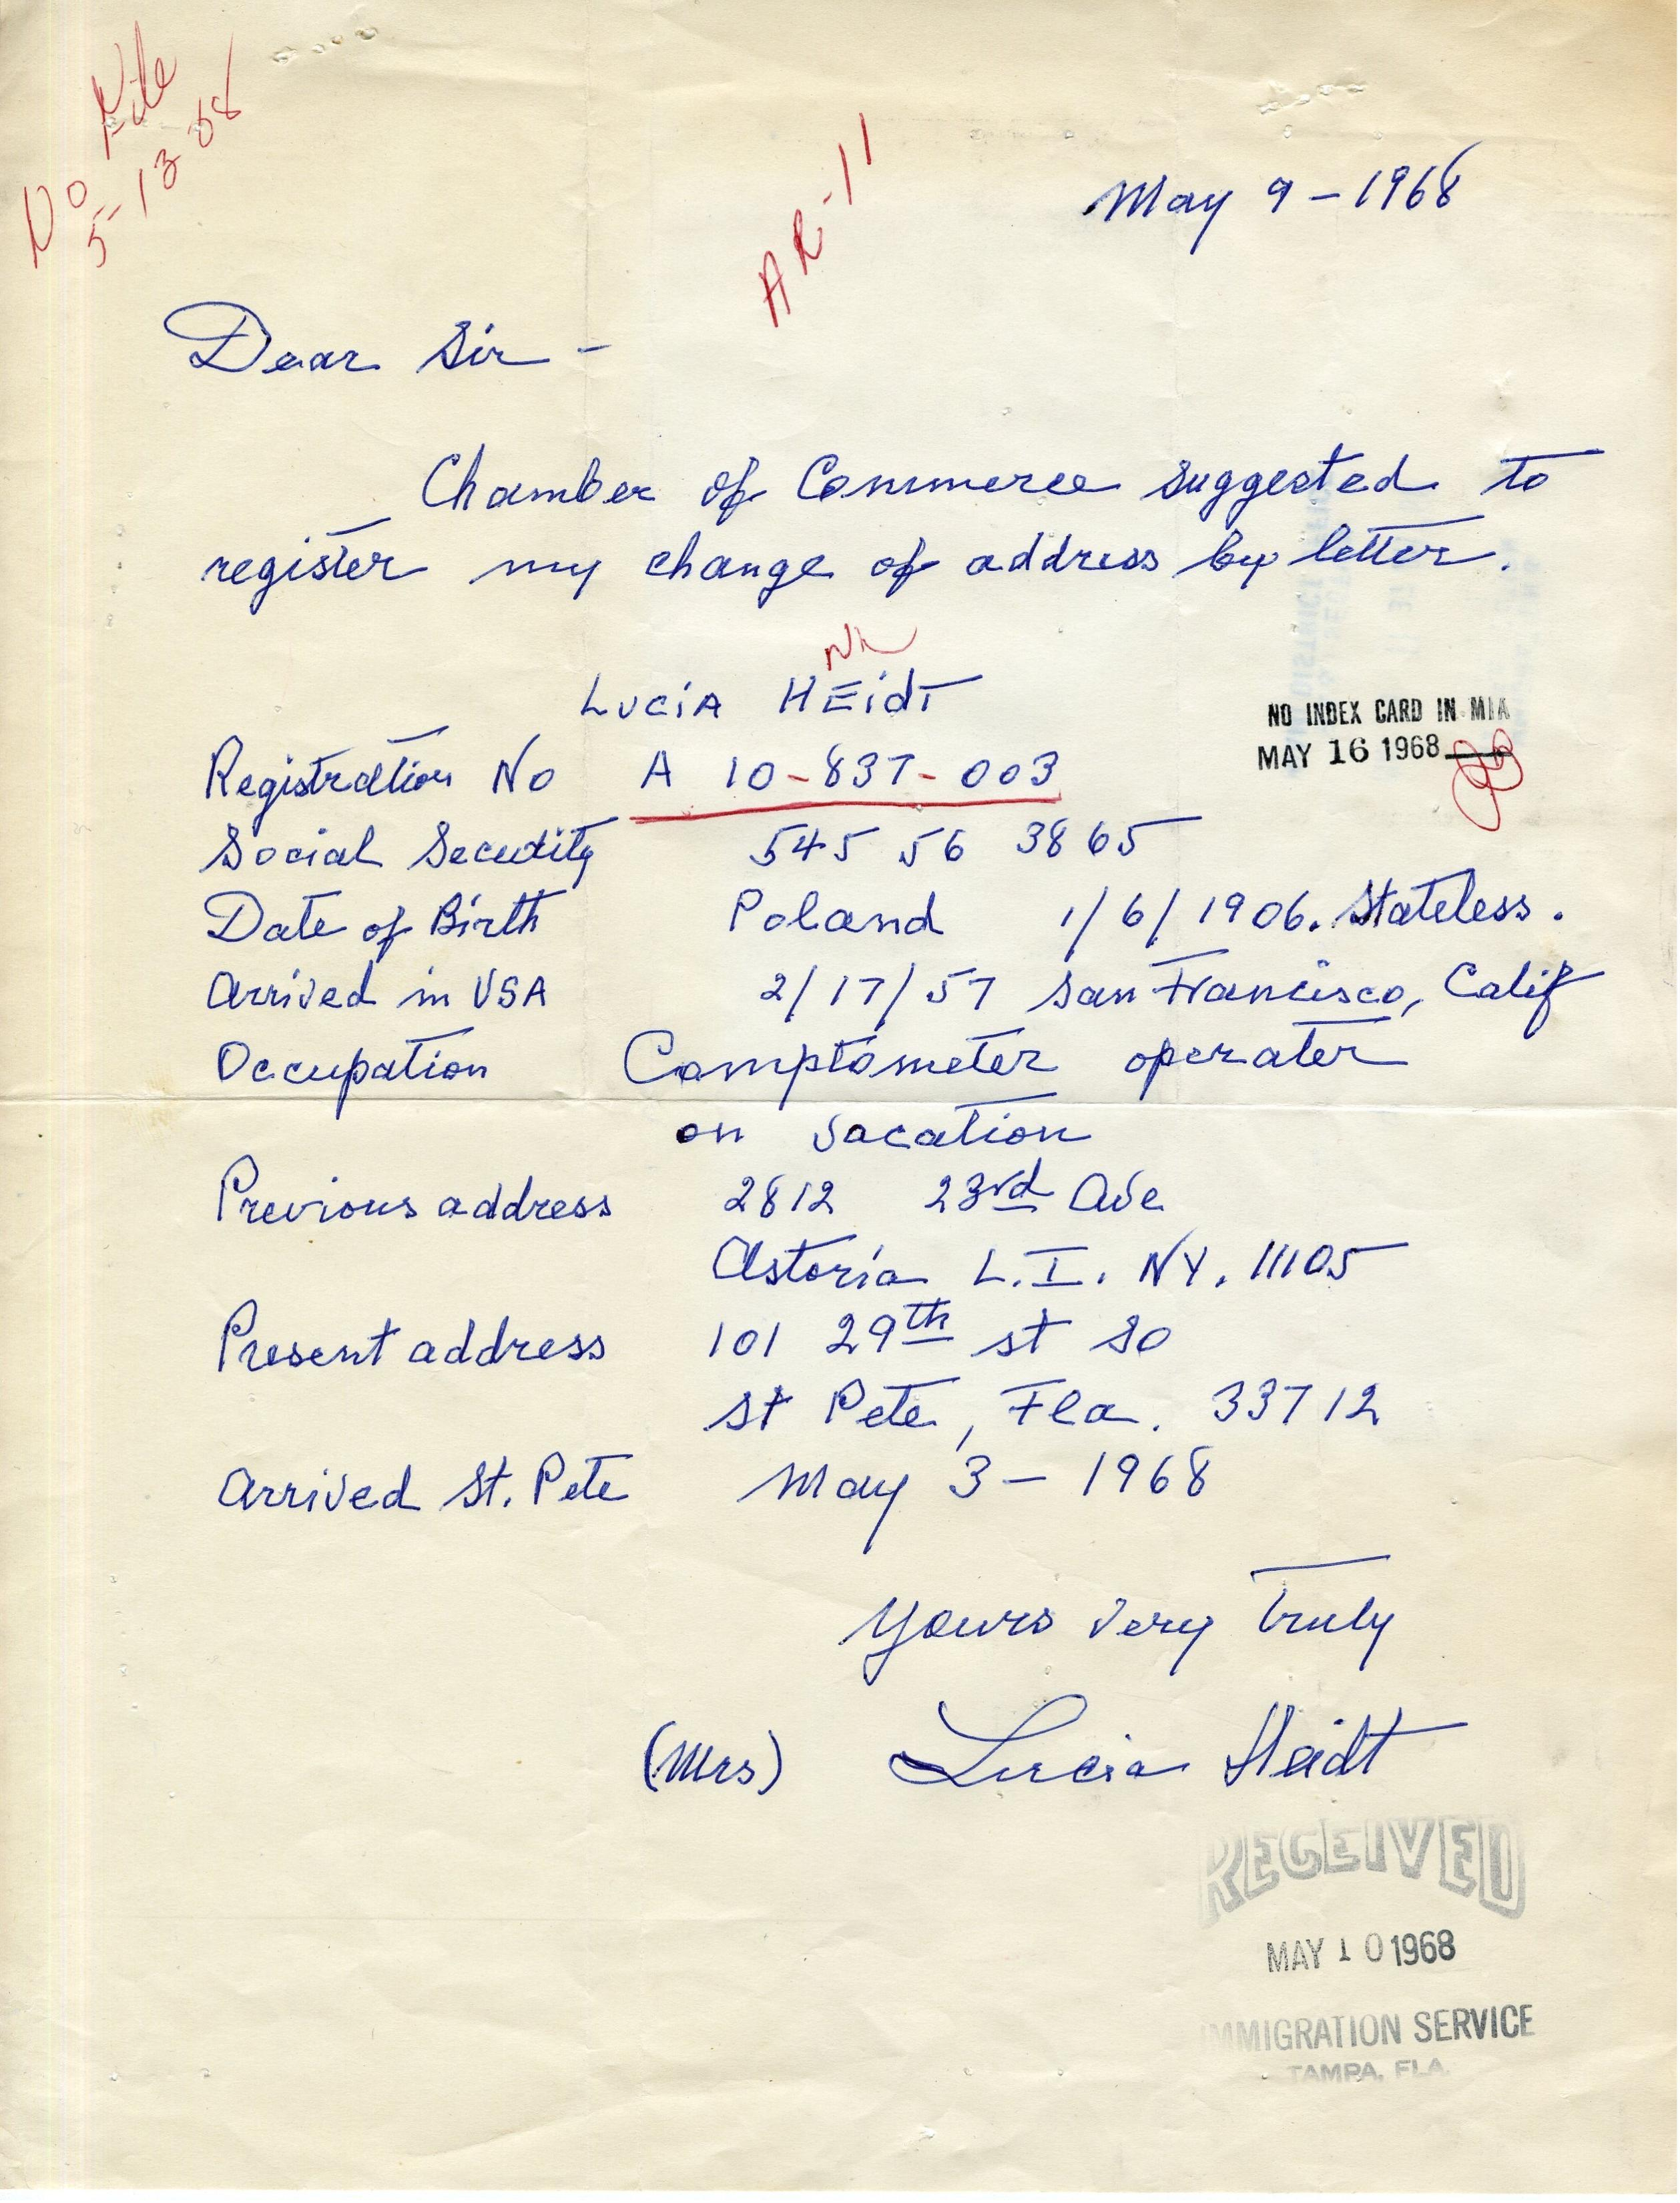 No File
5-13 68
AR-11
May 9 - 1968
Dear Sir -
Chamber of Commerce suggested to
register my change of address by letter.
NR
LUCIA HEidT
NO INDEX CARD IN MIA
MAY 16 1968
Registration No A 10-837-003
Social Security 545 56 3865
Date of Birth Poland 1/6/1906. Stateless.
Arrived in USA 2/17/57 San Francisco, Calif
Occupation Comptometer operater
on vacation
Previous address 2812 23rd Ave
Astoria L.I. NY. 11105
Present address 101 29th st So
St Pete, Fla. 33712
Arrived St. Pete May 3 - 1968
Yours very truly
(Mrs) Lucia Heidt
RECEIVED
MAY 10 1968
IMMIGRATION SERVICE
TAMPA, FLA.